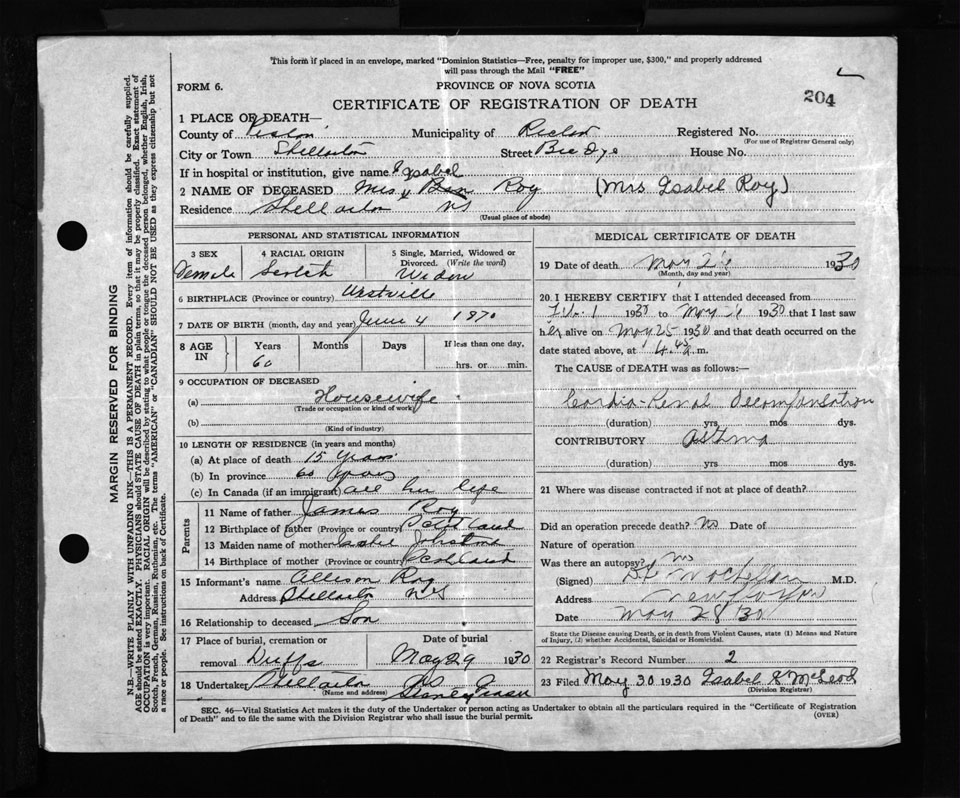 This form if placed in an envelope, marked "Dominion Statistics—Free, penalty for improper use, $300," and properly addressed
will pass through the Mail "FREE"
FORM 6.
PROVINCE OF NOVA SCOTIA
204
CERTIFICATE OF REGISTRATION OF DEATH
1 PLACE OF DEATH—
County of Municipality of Registered No.
(For use of Registrar General only)
City or Town Stellarton Street House No.
If in hospital or institution, give name Isabel
2 NAME OF DECEASED Mrs Ben Roy (Mrs Isabel Roy)
Residence Stellarton NS
(Usual place of abode)
PERSONAL AND STATISTICAL INFORMATION
3 SEX Female
4 RACIAL ORIGIN Scotch
5 Single, Married, Widowed or Divorced. (Write the word) Widow
6 BIRTHPLACE (Province or country) Westville
7 DATE OF BIRTH (month, day and year) June 4 1870
8 AGE IN Years Months Days If less than one day,
60 hrs. or min.
9 OCCUPATION OF DECEASED
(a) Housewife
(Trade or occupation or kind of work)
(b)
(Kind of industry)
10 LENGTH OF RESIDENCE (in years and months)
(a) At place of death 15 Years
(b) In province 60 years
(c) In Canada (if an immigrant) all her life
Parents
11 Name of father James Roy
12 Birthplace of father (Province or country) Scotland
13 Maiden name of mother Johnstone
14 Birthplace of mother (Province or country) Scotland
15 Informant's name Allison Roy
Address Stellarton NS
16 Relationship to deceased Son
17 Place of burial, cremation or removal Duffs
Date of burial May 29 1930
18 Undertaker Stellarton NS
(Name and address)
MEDICAL CERTIFICATE OF DEATH
19 Date of death May 1930
(Month, day and year)
20 I HEREBY CERTIFY that I attended deceased from
Feb. 1 1930 to May 1930 that I last saw
her alive on May 25 1930 and that death occurred on
date stated above, at m.
The CAUSE of DEATH was as follows:—
Cardio-Renal Decompensation
(duration) yrs mos dys.
CONTRIBUTORY Asthma
(duration) yrs mos dys.
21 Where was disease contracted if not at place of death?
Did an operation precede death? No Date of
Nature of operation
Was there an autopsy? no
(Signed) M.D.
Address
Date May 28 30
State the Disease causing Death, or in death from Violent Causes, state (1) Means and Nature
of Injury, (2) whether Accidental, Suicidal or Homicidal.
22 Registrar's Record Number 2
23 Filed May 30 1930 Isabel S McLeod
(Division Registrar)
SEC. 46—Vital Statistics Act makes it the duty of the Undertaker or person acting as Undertaker to obtain all the particulars required in the "Certificate of Registration
of Death" and to file the same with the Division Registrar who shall issue the burial permit.
(OVER)
MARGIN RESERVED FOR BINDING
N.B.—WRITE PLAINLY WITH UNFADING INK—THIS IS A PERMANENT RECORD. Every item of information should be carefully supplied.
AGE should be stated EXACTLY. PHYSICIANS should STATE CAUSE OF DEATH in plain terms, so that it may be properly classified. Exact statement of
OCCUPATION is very important. RACIAL ORIGIN will be described by stating to what people or tongue the deceased person belonged, whether English, Irish,
Scotch, French, German, Russian, Ruthenian, etc. The terms "AMERICAN" or "CANADIAN" SHOULD NOT BE USED as they express citizenship but not
a race or people. See instructions on back of Certificate.